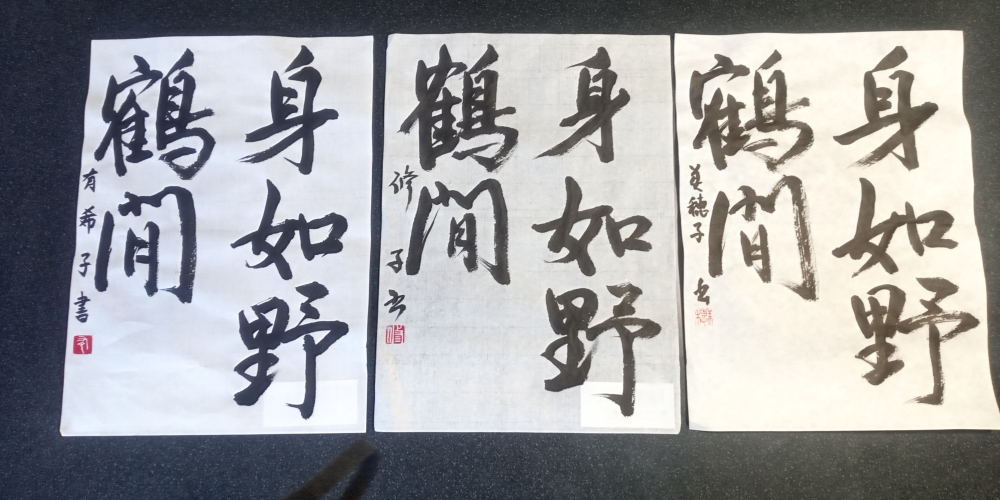 身如野
鶴間
美穂子書
身如野
鶴間
修子書
身如野
鶴間
有希子書